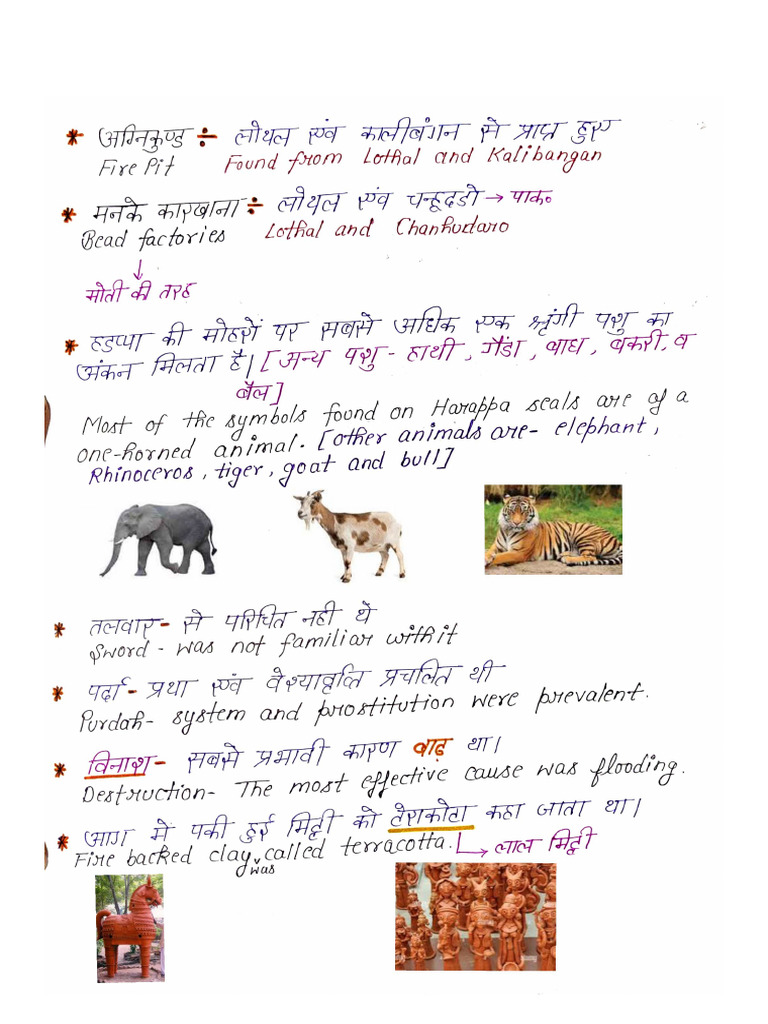 * अग्निकुण्ड ÷ लोथल एवं कालीबंगन से प्राप्त हुए
Fire Pit Found from Lothal and Kalibangan
* मनके कारखाना ÷ लोथल एवं चन्हूदडो → पाक॰
Bead factories Lothal and Chanhudaro
↓
मोती की तरह
* हडप्पा की मोहरों पर सबसे अधिक एक श्रृंगी पशु का
अंकन मिलता है। [अन्य पशु - हाथी, गैंडा, बाघ, बकरी, व
बैल]
Most of the symbols found on Harappa seals are of a
one-horned animal. [other animals are- elephant,
Rhinoceros, tiger, goat and bull]
* तलवार - से परिचित नही थे
Sword - was not familiar with it
* पर्दा - प्रथा एवं वेश्यावृत्ति प्रचलित थी
Purdah- system and prostitution were prevalent.
* विनाश - सबसे प्रभावी कारण बाढ़ था।
Destruction- The most effective cause was flooding.
* आग में पकी हुई मिट्टी को टेराकोटा कहा जाता था।
Fire backed clay was called terracotta. → लाल मिट्टी